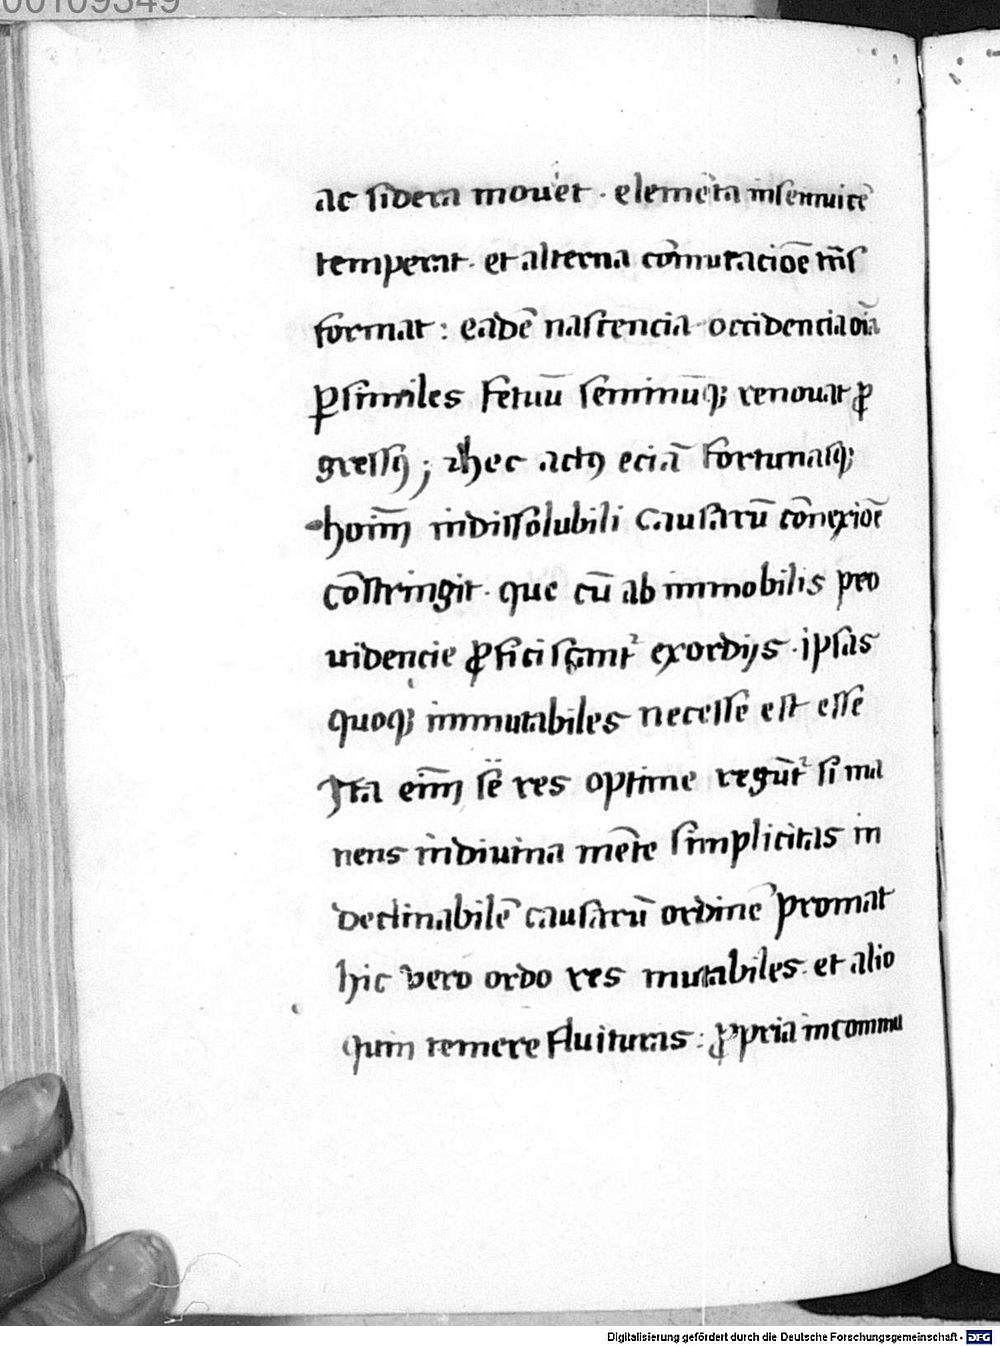 00109349
ac sidera mouet · elemēta inseinuicē
temperat · et alterna cōmutacioē trās
format : eadē nascencia occidencia oīa
ꝑ similes fetuū seminūqꝫ renouat ꝓ
gressꝰ ; hec actꝰ eciā fortunasqꝫ
hoīm indissolubili causarū cōnexiōe
cōstringit · que cū ab immobilis pro
uidencie ꝓficiscantᷣ exordijs · ipsas
quoqꝫ immutabiles necesse est esse
Ita eīm sē res optime regūtᷣ si ma
nens indiuina mēte simplicitas in
declinabilē causarū ordinē promat
hic vero ordo res mutabiles · et alio
quin temere fluituras : ꝓpria incommu
Digitalisierung gefördert durch die Deutsche Forschungsgemeinschaft - DFG